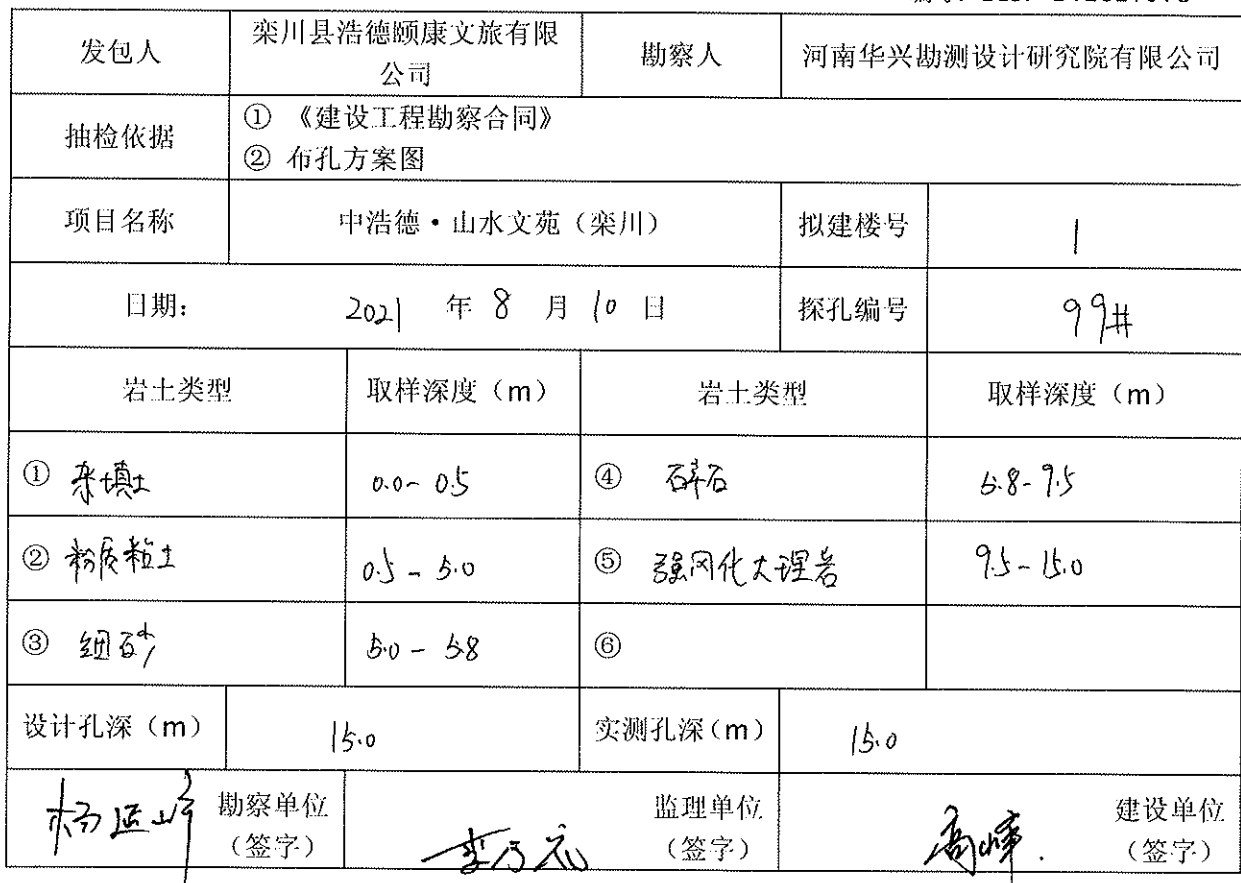 发包人 栾川县浩德颐康文旅有限公司 勘察人 河南华兴勘测设计研究院有限公司
抽检依据 ① 《建设工程勘察合同》
② 布孔方案图
项目名称 中浩德·山水文苑（栾川） 拟建楼号 1
日期： 2021 年 8 月 10 日 探孔编号 99#
岩土类型 取样深度（m） 岩土类型 取样深度（m）
① 杂填土 0.0-0.5 ④ 碎石 5.8-9.5
② 粉质粘土 0.5-5.0 ⑤ 强风化大理岩 9.5-15.0
③ 细砂 5.0-5.8 ⑥
设计孔深（m） 15.0 实测孔深（m） 15.0
勘察单位 监理单位 高峰. 建设单位
（签字） （签字） （签字）